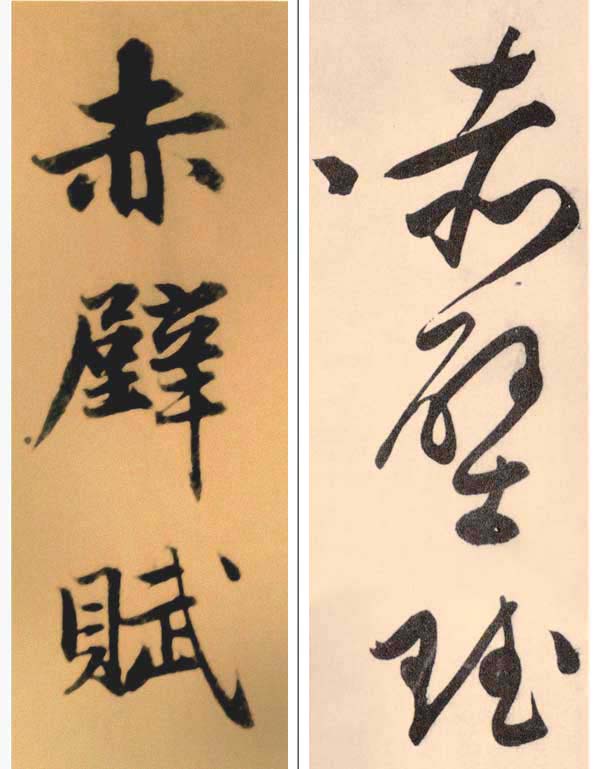 赤壁賦
赤壁賦